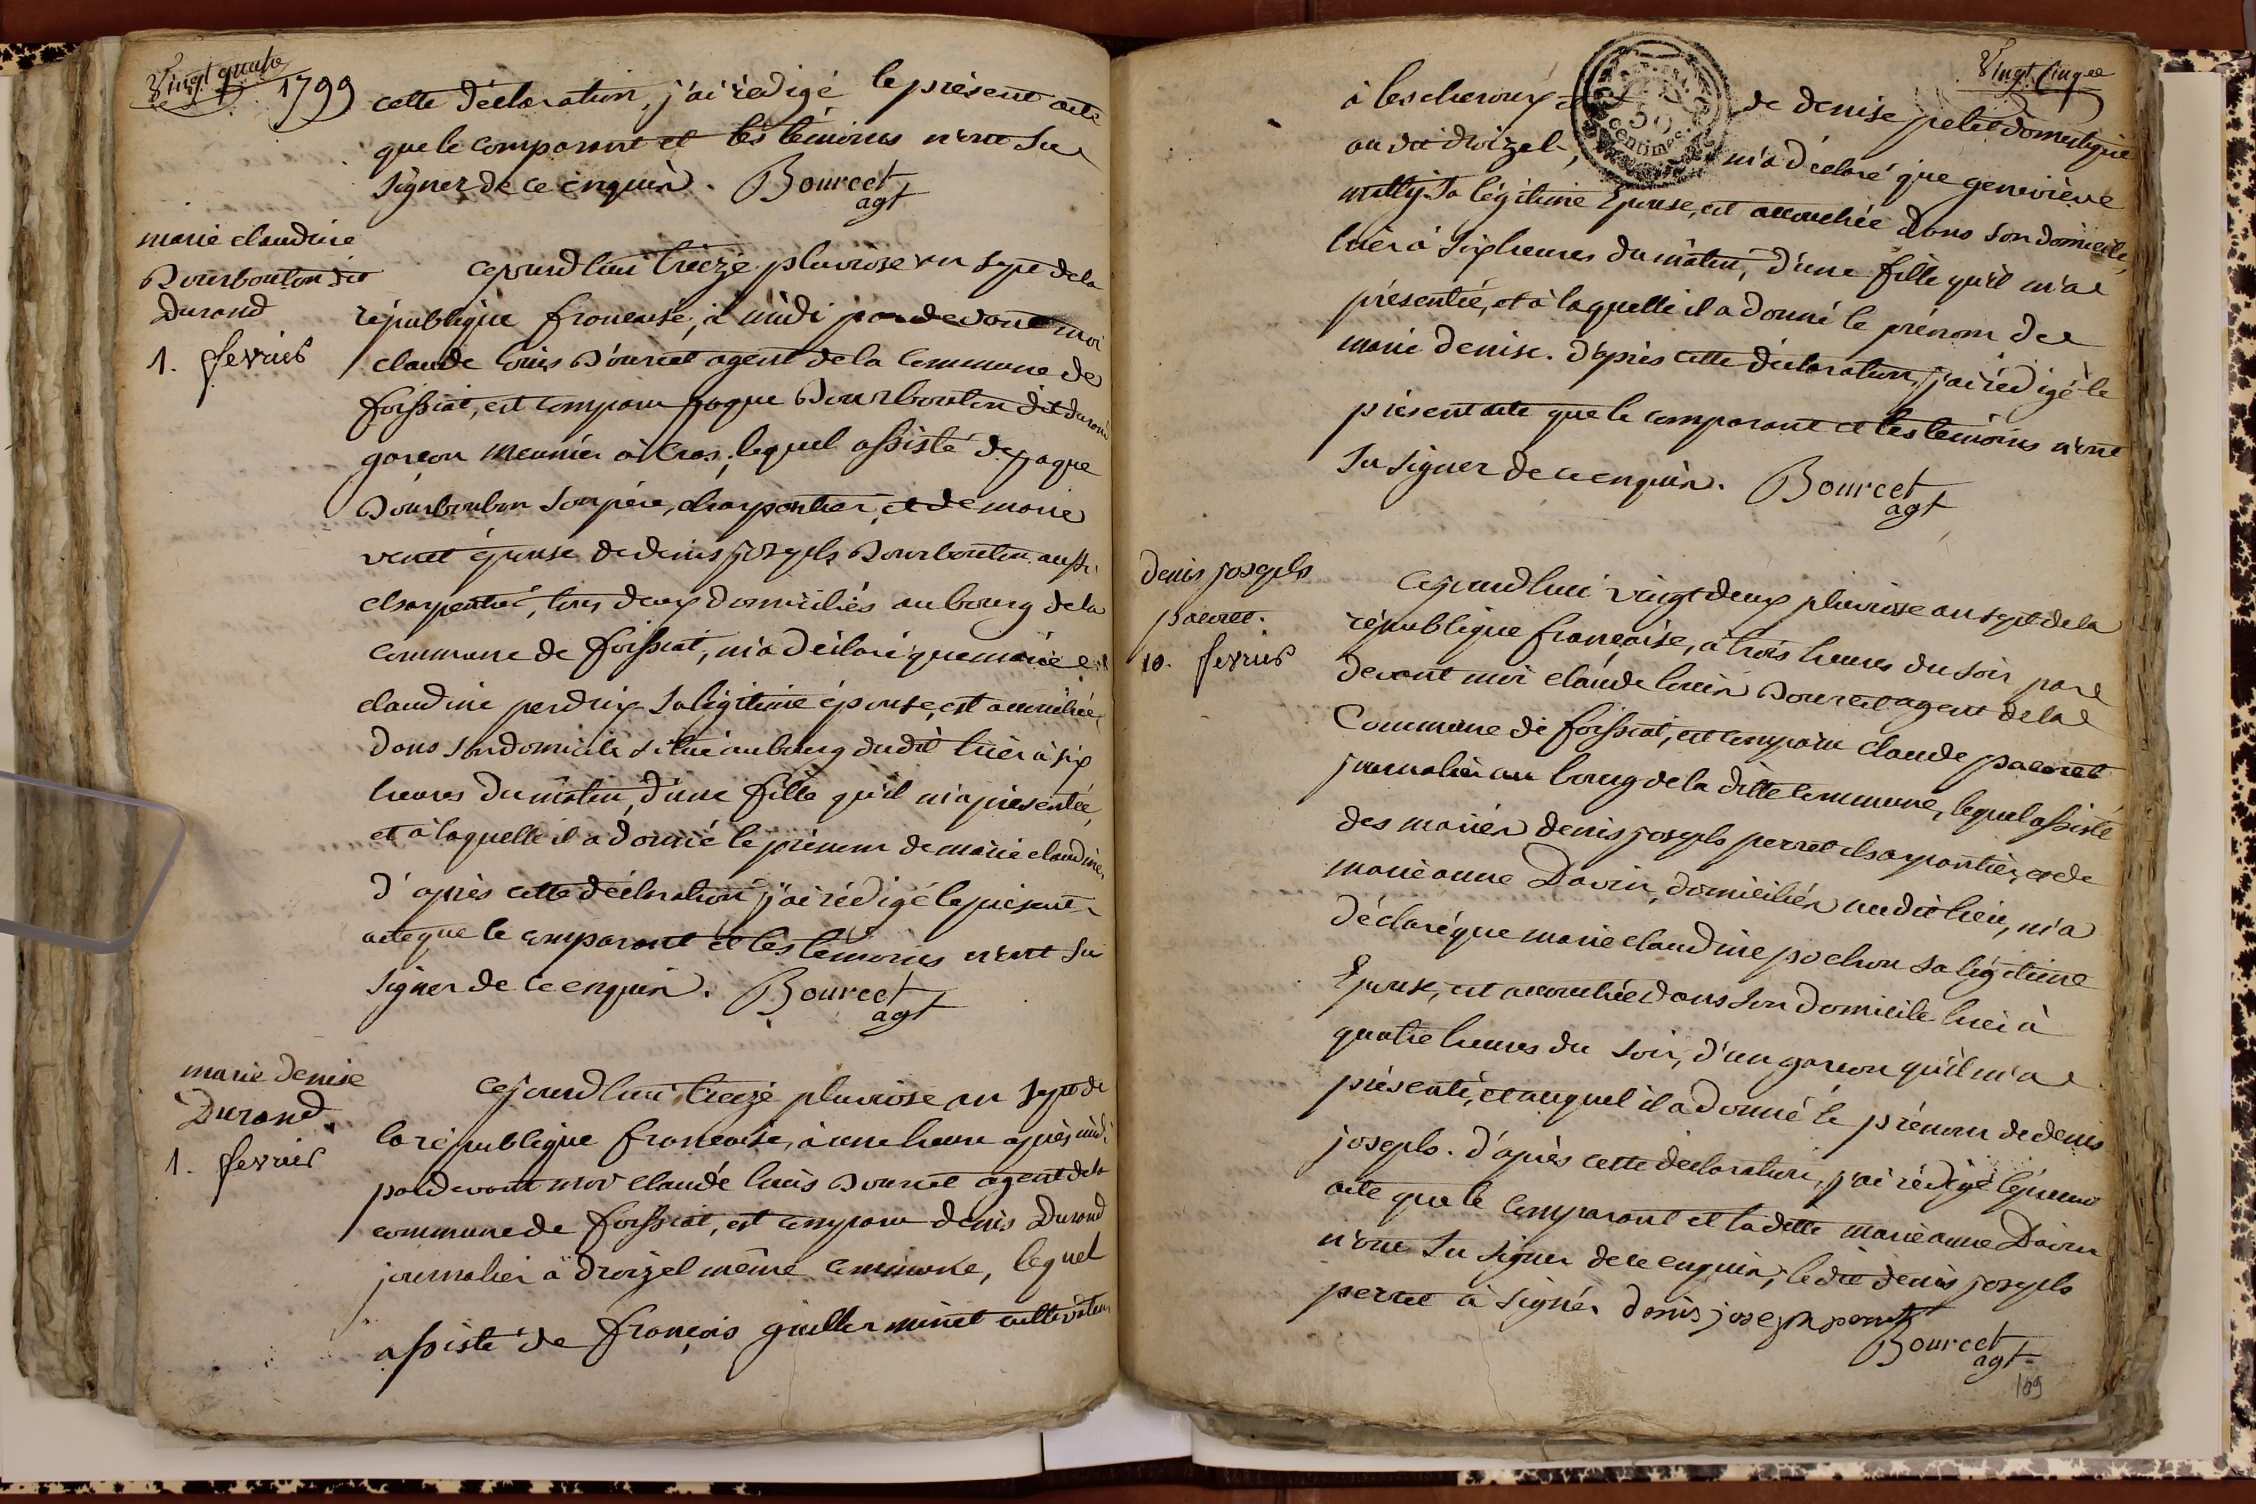 Vingt quatre
1799
cette déclaration, j'ai rédigé le présent acte
que le comparant et les témoins n'ont su
signer de ce enquis. Bourcet
agt
marie claudine
Bourbouton dit
Durand
1. fevrier
Cejourd'hui treize pluviose an sept de la
république francaise, à midi pardevant moi
claude louis Bourcet agent de la commune de
foissiat, est comparu jaque Bourbouton dit durand
garcon meunier à Cras, lequel assisté de jaque
Bourbouton son père, charpentier, et de marie
venet épouse de denis joseph Bourbouton aussi
charpentier, tous deux domiciliés au bourg de la
commune de foissiat, m'a déclaré que marie
claudine perdrix sa légitime épouse, est accouchée
dans son domicile situé au bourg dudit hier à six
heures du mâtin, d'une fille qu'il m'a présentée,
et à laquelle il a donné le prénom de marie claudine,
d'après cette déclaration j'ai rédigé le présent
acte que le comparant et les témoins n'ont su
signer de ce enquis. Bourcet
agt
marie denise
Durand.
1. fevrier
Cejourd'hui treize pluviose an sept de
la république francaise, à une heure après midi
pardevant moi claude louis Bourcet agent de la
commune de foissiat, est comparu denis Durand
journalier à droizel même commune, lequel
assisté de françois guillerminet cultivateur
Vingt Cinq
à lescheroux et de denise petit domestique
au dit droizel, m'a déclaré que geneviève
mettij sa légitime Epouse, est accouchée dans son domicile,
hier à six heures du mâtin, d'une fille qu'il m'a
présentée, et à laquelle il a donné le prénom de
marie denise. d'après cette déclaration, j'ai rédigé le
présent acte que le comparant et les témoins n'ont
su signer de ce enquis. Bourcet
agt
50
centimes
denis joseph
pacoret.
10. fevrier
Cejourd'hui vingt deux pluviose an sept de la
république française, à trois heures du soir par
devant moi claude louis Bourcet agent de la
Commune de foissiat, est comparu claude pacoret
journalier au bourg de la ditte commune, lequel assisté
des mariés denis joseph perret charpentier, et de
marie anne Davin, domiciliés audit lieu, m'a
déclaré que marie claudine pochon sa légitime
Epouse, est accouchée dans son domicile hier à
quatre heures du soir, d'un garcon qu'il m'a
présenté, et auquel il a donné le prénom de denis
joseph. d'après cette déclaration, j'ai rédigé le présent
acte que le comparant et la ditte marie anne Davin
n'ont su signer de ce enquis, le dit denis joseph
perret a signé. denis joseph perret
Bourcet
agt
109